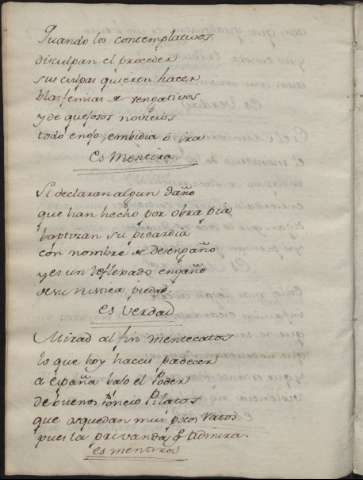 Quando los contemplativos
disculpan el proceder
sus culpas quieren hacer
blasfemias de vengativos
y de quejosos novicios
todo enojo embidia o ira
Es Mentira
Si declaran algun daño
que han hecho por obra pia
bautizan su picardia
con nombre de desengaño
y es un reflexado engaño
de su piedad
es verdad
Mirad al fin mentecatos
lo que hoy hacen padecer
a España bajo el Poder
de buenos Poncio Pilatos
que aquedan mui pocos Vatos
pues la privanda q.
es mentira